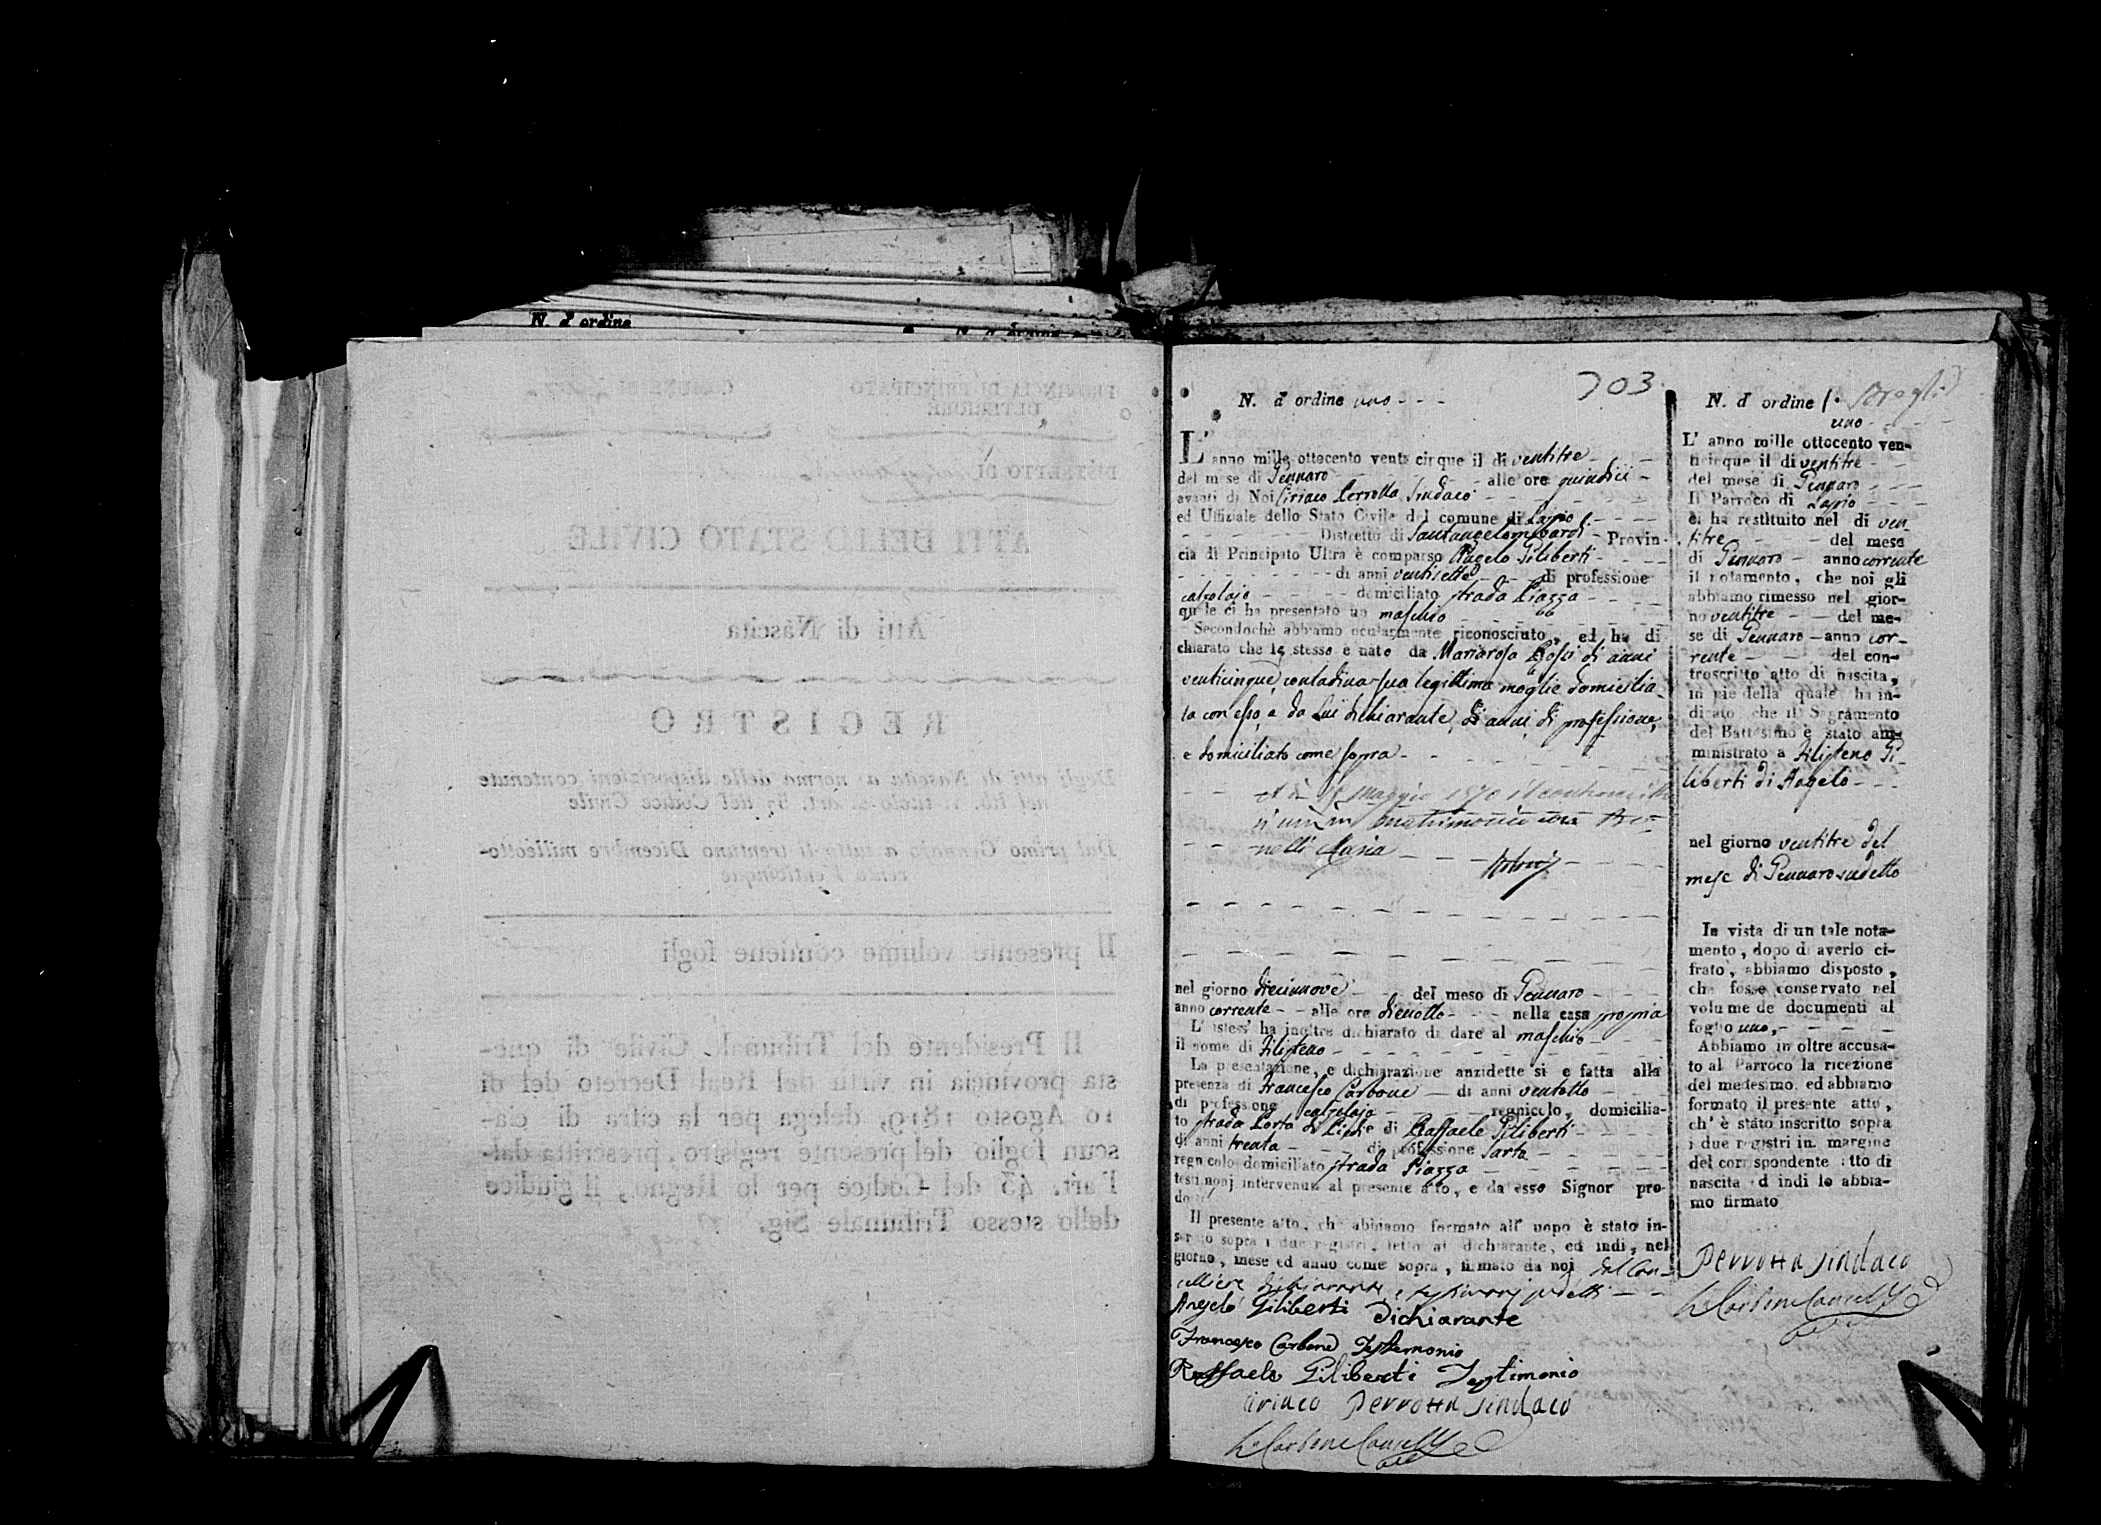 N. d' ordine
N. d' ordine
PROVINCIA DI PRINCIPATO
ULTERIORE
COMUNE DI
DISTRETTO DI
ATTI DELLO STATO CIVILE
Atti di Nascita
REGISTRO
Degli atti di Nascita a norma delle disposizioni contenute
nel lib. 1. titolo 2. art. 57 del Codice Civile
Dal primo Gennajo a tutto il trentuno Dicembre milleotto-
cento venticinque
Il presente volume contiene fogli
Il Presidente del Tribunal Civile di que-
sta provincia in virtù del Real Decreto del dì
10 Agosto 1819, delega per la cifra di cia-
scun foglio del presente registro prescritta dal-
l'art. 43 del Codice per lo Regno, il giudice
dello stesso Tribunale Sig.
703
N. d' ordine uno
L' anno mille ottocento venti cinque il dì ventitre
del mese di Gennaro alle ore quindici
avanti di Noi Ciriaco Perrotta Sindaco
ed Uffiziale dello Stato Civile del comune di Lapio
Distretto di Santangelolombardi Provin-
cia di Principato Ultra è comparso Angelo Giliberti
di anni ventisette di professione
calzolajo domiciliato strada Piazza
quale ci ha presentato un maschio
Secondochè abbiamo ocularmente riconosciuto, ed ha di
chiarato che lo stesso è nato da Mariarosa di anni
venticinque, contadina sua legittima moglie domicilia-
ta con esso, e da Lui dichiarante, di anni, di professione,
e domiciliato come sopra
A dì maggio 1870 il
s'unì in matrimonio con
nelli Maria
nel giorno diecinnove del mese di Gennaro
anno corrente alle ore dieciotto nella casa propria
L' istess' ha inoltre dichiarato di dare al maschio
il nome di Filisteno
La presentazione, e dichiarazione anzidette si è fatta alla
presenza di Francesco Carbone di anni ventotto
di professione calzolajo regnicolo, domicilia-
to strada Porta di e di Raffaele Giliberti
di anni trenta di professione Sarto
regnicolo domiciliato strada Piazza
testimonj intervenuti al presente atto, e da esso Signor pro-
dotti
Il presente atto, ch' abbiamo formato all' uopo è stato in-
serito sopra i due registri, letto al dichiarante, ed indi, nel
giorno, mese ed anno come sopra, firmato da noi dal Can-
celliere dichiarante, e testimonj sudetti
Angelo Giliberti Dichiarante
Francesco Carbone Testemonio
Raffaele Giliberti Testimonio
Ciriaco Perrotta Sindaco
Carbone Cancelle
N. d' ordine 1.
uno
L' anno mille ottocento ven-
ticinque il dì ventitre
del mese di Gennaro
Il Parroco di Lapio
ci ha restituito nel dì ven-
titre del mese
di Gennaro anno corrente
il notamento, che noi gli
abbiamo rimesso nel gior-
no ventitre del me-
se di Gennaro anno cor-
rente del con-
troscritto atto di nascita,
in piè della quale ha in-
dicato che il Sagramento
del Battesimo è stato am-
ministrato a Filisteno Gi-
liberti di Angelo
nel giorno ventitre del
mese di Gennaro sudetto
In vista di un tale nota-
mento, dopo di averlo ci-
frato, abbiamo disposto,
che fosse conservato nel
volume de documenti al
foglio uno,
Abbiamo in oltre accusa-
to al Parroco la ricezione
del medesimo, ed abbiamo
formato il presente atto,
ch' è stato inscritto sopra
i due registri in margine
del corrispondente atto di
nascita ed indi lo abbia-
mo firmato
Perrotta Sindaco
Carbone Cancelle